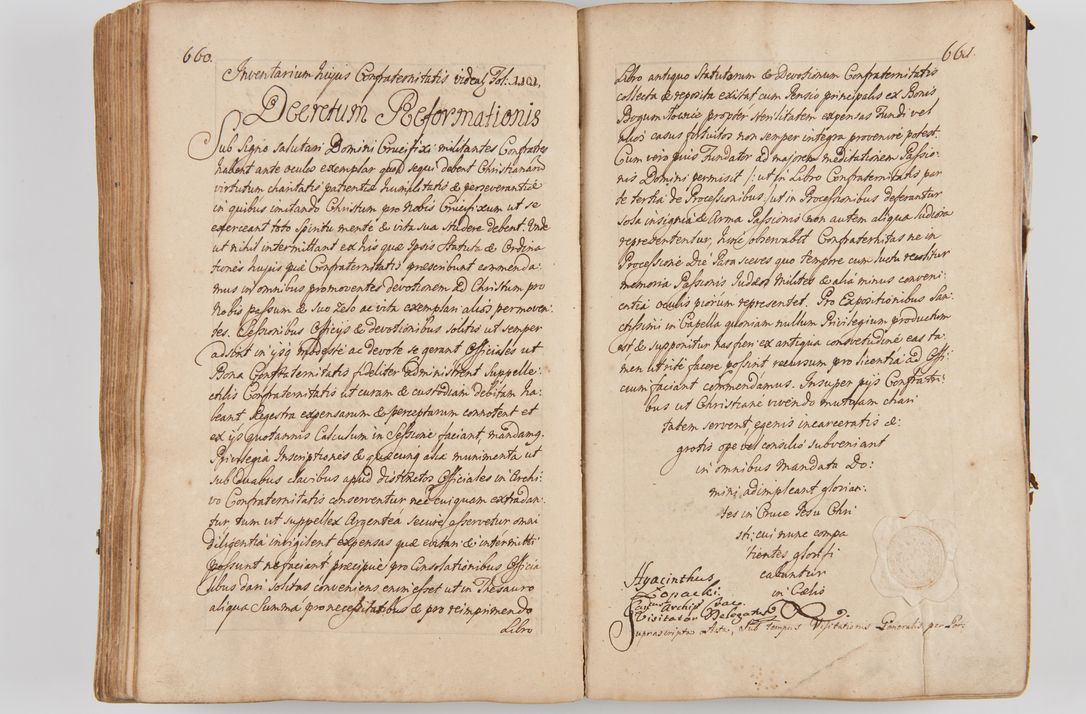 660.
Inventarium hujus Confraternitatis videas Fol: 1101.
Decretum Reformationis
Sub Signo salutari Domini Crucifixi militantes Confratres
habent ante oculos exemplar quod sequi debent Christianarū
virtutum charitatis patientiæ humilitatis & perseverantiæ
in quibus imitando Christum pro nobis Crucifixum ut se
exerceant toto spiritu mente & vita sua studere debent. Unde
ut nihil intermittant ex his quæ Ipsis Statuta & Ordina
tiones hujus piæ Confraternitatis præscribunt commenda:
mus in omnibus promoventes devotionem ad Christum pro
nobis passum & suo zelo ac vita exemplari alios permoven:
tes. Sessionibus Officijs & devotionibus solitis ut semper
adsint in ijsq modeste ac devote se gerant Officiales ut
Bona Confraternitatis fideliter administrent Supelle:
ctilis Confraternitatis ut curam & custodiam debitam ha:
beant Regestra expensarum & perceptarum connotent et
ex ijs quotannis Calculum in Sessione faciant, mandamq.
Privilegia Inscriptiones & quæcunq alia munimenta ut
sub duabus clavibus apud distinctos Officiales in Archi:
vo Confraternitatis conserventur nec cuiquam extradan:
tur tum ut suppellex Argentea secure asservetur omni
diligentia invigilent expensas quæ evitari & intermitti
possunt ne faciant præcipue pro Consolationibus Officia
libus dari solitas conveniens enim esset ut in Thesauro
aliqua Summa pro necessitatibus & pro reimprimendo
Libro
661.
Libro antiquo Statutorum & Devotionum Confraternitatis
collecta & reposita existat cum Pensio principalis ex Bonis
propter sterilitatem expensas Fundi vel
alios casus fortuitos non semper integra provenire potest.
Cum vero pius Fundator ad majorem meditationem Passio:
nis Domini permisit /: ut in Libro Confraternitatis par
te tertia de Processionibus :/ ut in Processionibus deferantur
sola insignia & Arma Passionis non autem aliqua ludicra
representantur, hinc observabit Confraternitas ne in
Processione Die Parasceves quo tempore cum luctu recolitur
memoria Passionis Judæos Milites & alia minus conveni:
entia oculis piorum representet. Pro Expositionibus San:
ctissimi in Capella quoniam nullum Privilegium productum
est & supponitur has fieri ex antiqua consvetudine eas ta:
men ut rite facere possint recursum pro licentia ad Offi:
cium faciant commendamus. Insuper pijs Confratri:
bus ut Christiane vivendo mutuam chari
tatem servent, egenis incarceratis æ:
grotis ope vel consilio subveniant
in omnibus Mandata Do:
mini adimpleant glorian:
tes in Cruce Jesu Chri
sti: cui nunc compa
tientes glorifi
cabuntur
in Cælis
Hyacinthus
Łopacki
Visitator Delegatus
Suprascripta Acta, sub tempus Visitationis Generalis per